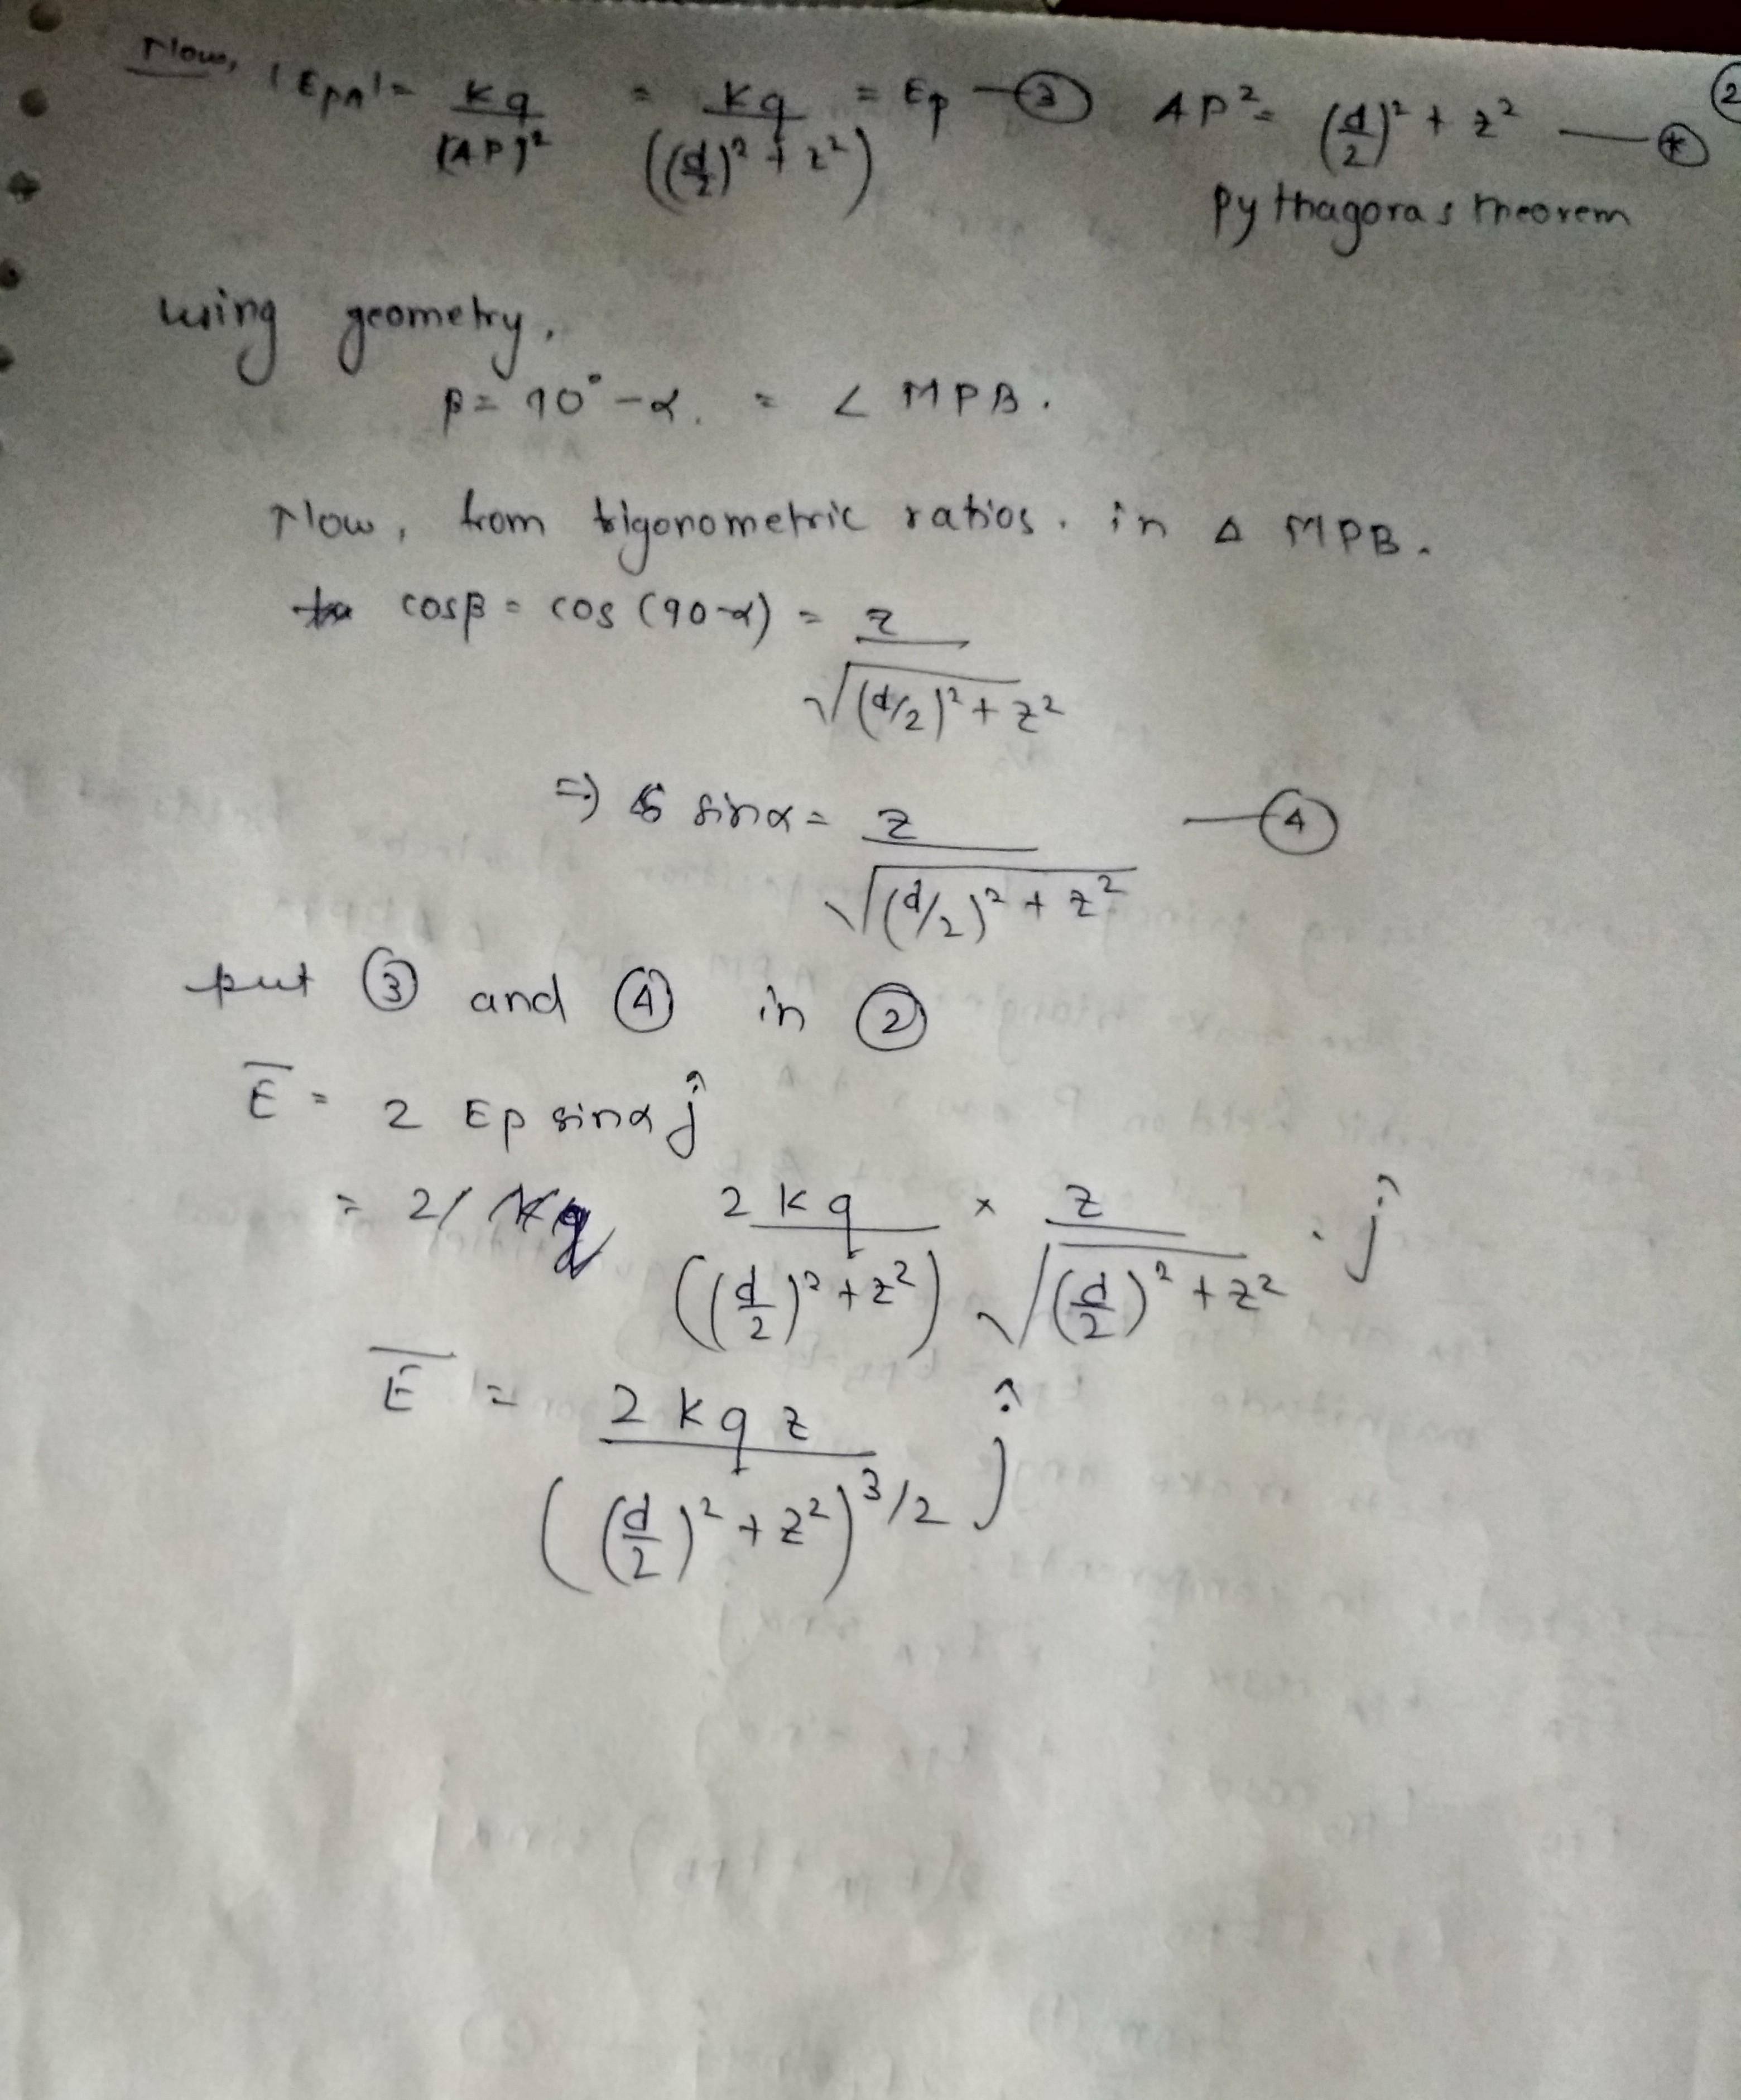 Now, |EPA| = Kq/(AP)² = Kq/((d/2)² + z²) = Ep —③ AP² = (d/2)² + z² —⊛ ②
Pythagoras theorem
using geometry.
β = 90° - α. = ∠ MPB.
Now, from trigonometric ratios. in Δ MPB.
cosβ = cos (90-α) = z/√((d/2)² + z²)
⇒ sinα = z/√((d/2)² + z²) —④
put ③ and ④ in ②
E̅ = 2 Ep sinα ĵ
= 2Kq/((d/2)² + z²) × z/√((d/2)² + z²) . ĵ
E̅ = 2Kqz/((d/2)² + z²)^3/2 ĵ